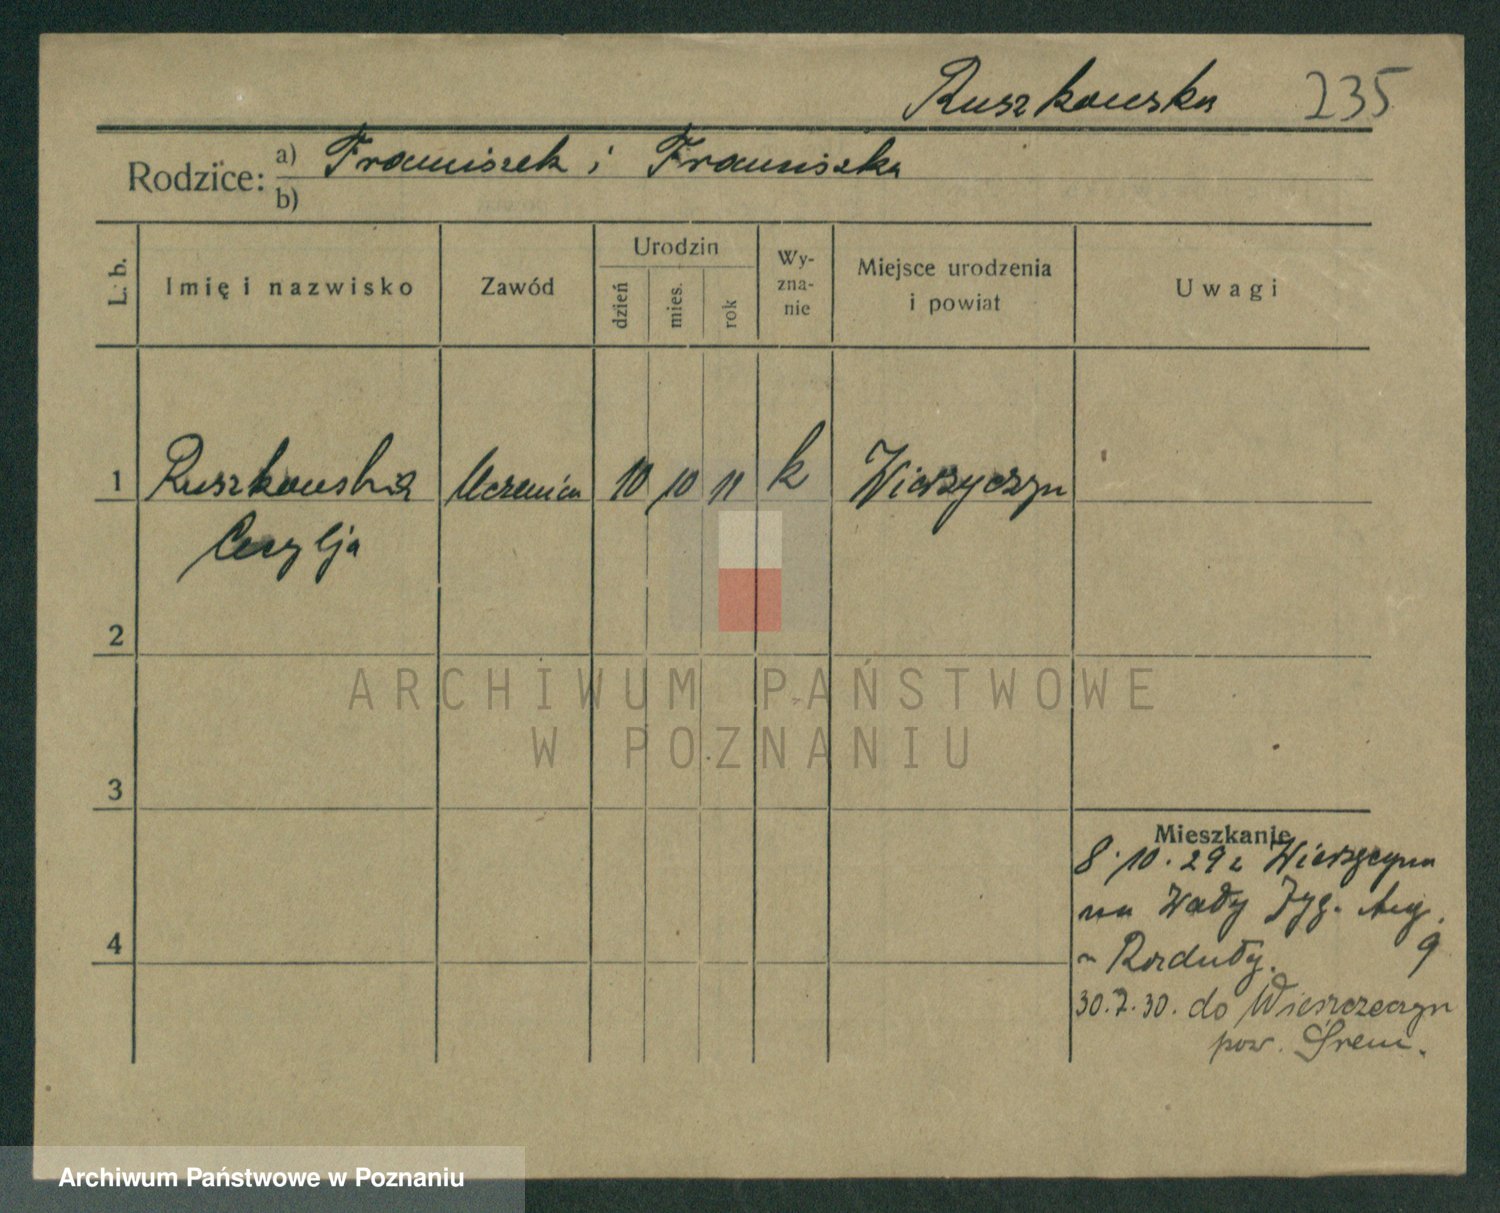 Ruszkowska 235
Rodzice: a) Franciszek i Franciszka
b)
L. b.
Imię i nazwisko
Zawód
Urodzin
dzień
mies.
rok
Wy-
zna-
nie
Miejsce urodzenia
i powiat
Uwagi
1 Ruszkowska Uczenica 10 10 11 k Wieszyczyn
Cecylja
2
3
4
ARCHIWUM PAŃSTWOWE
W POZNANIU
Mieszkanie
8.10.29 z Wieszczyna
na Wały Zyg. Aug.
9
30.7.30. do Wieszczeczyn
pow. Śrem.
Archiwum Państwowe w Poznaniu